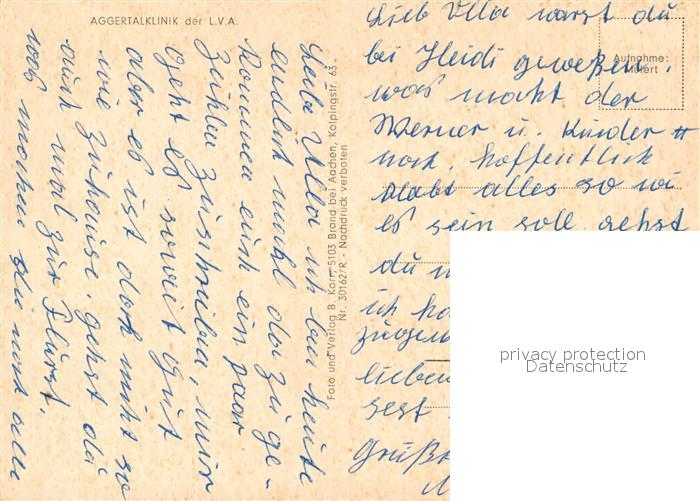 AGGERTALKLINIK der L.V.A.
Liebe Ulla ich bin heute
endlich mahl da zu ge-
kommen euch ein paar
Zeihlen zuschreiben, mir
geht es soweit gut
aber es ist doch nicht so
wie zuhause. gehst du
auch mal zur
was machen die noch alle
Foto und Verlag B. Korr, 5103 Brand bei Aachen, Kolpingstr. 63
Nr. 30162/R - Nachdruck verboten
Aufnahme:
Lieb Ulla warst du
bei Heidi geweßen,
was macht der
Werner u. Kinder
noch, hoffentlich
alles so wie
es sein soll gehst
du
ich
lieben
privacy protection
Datenschutz